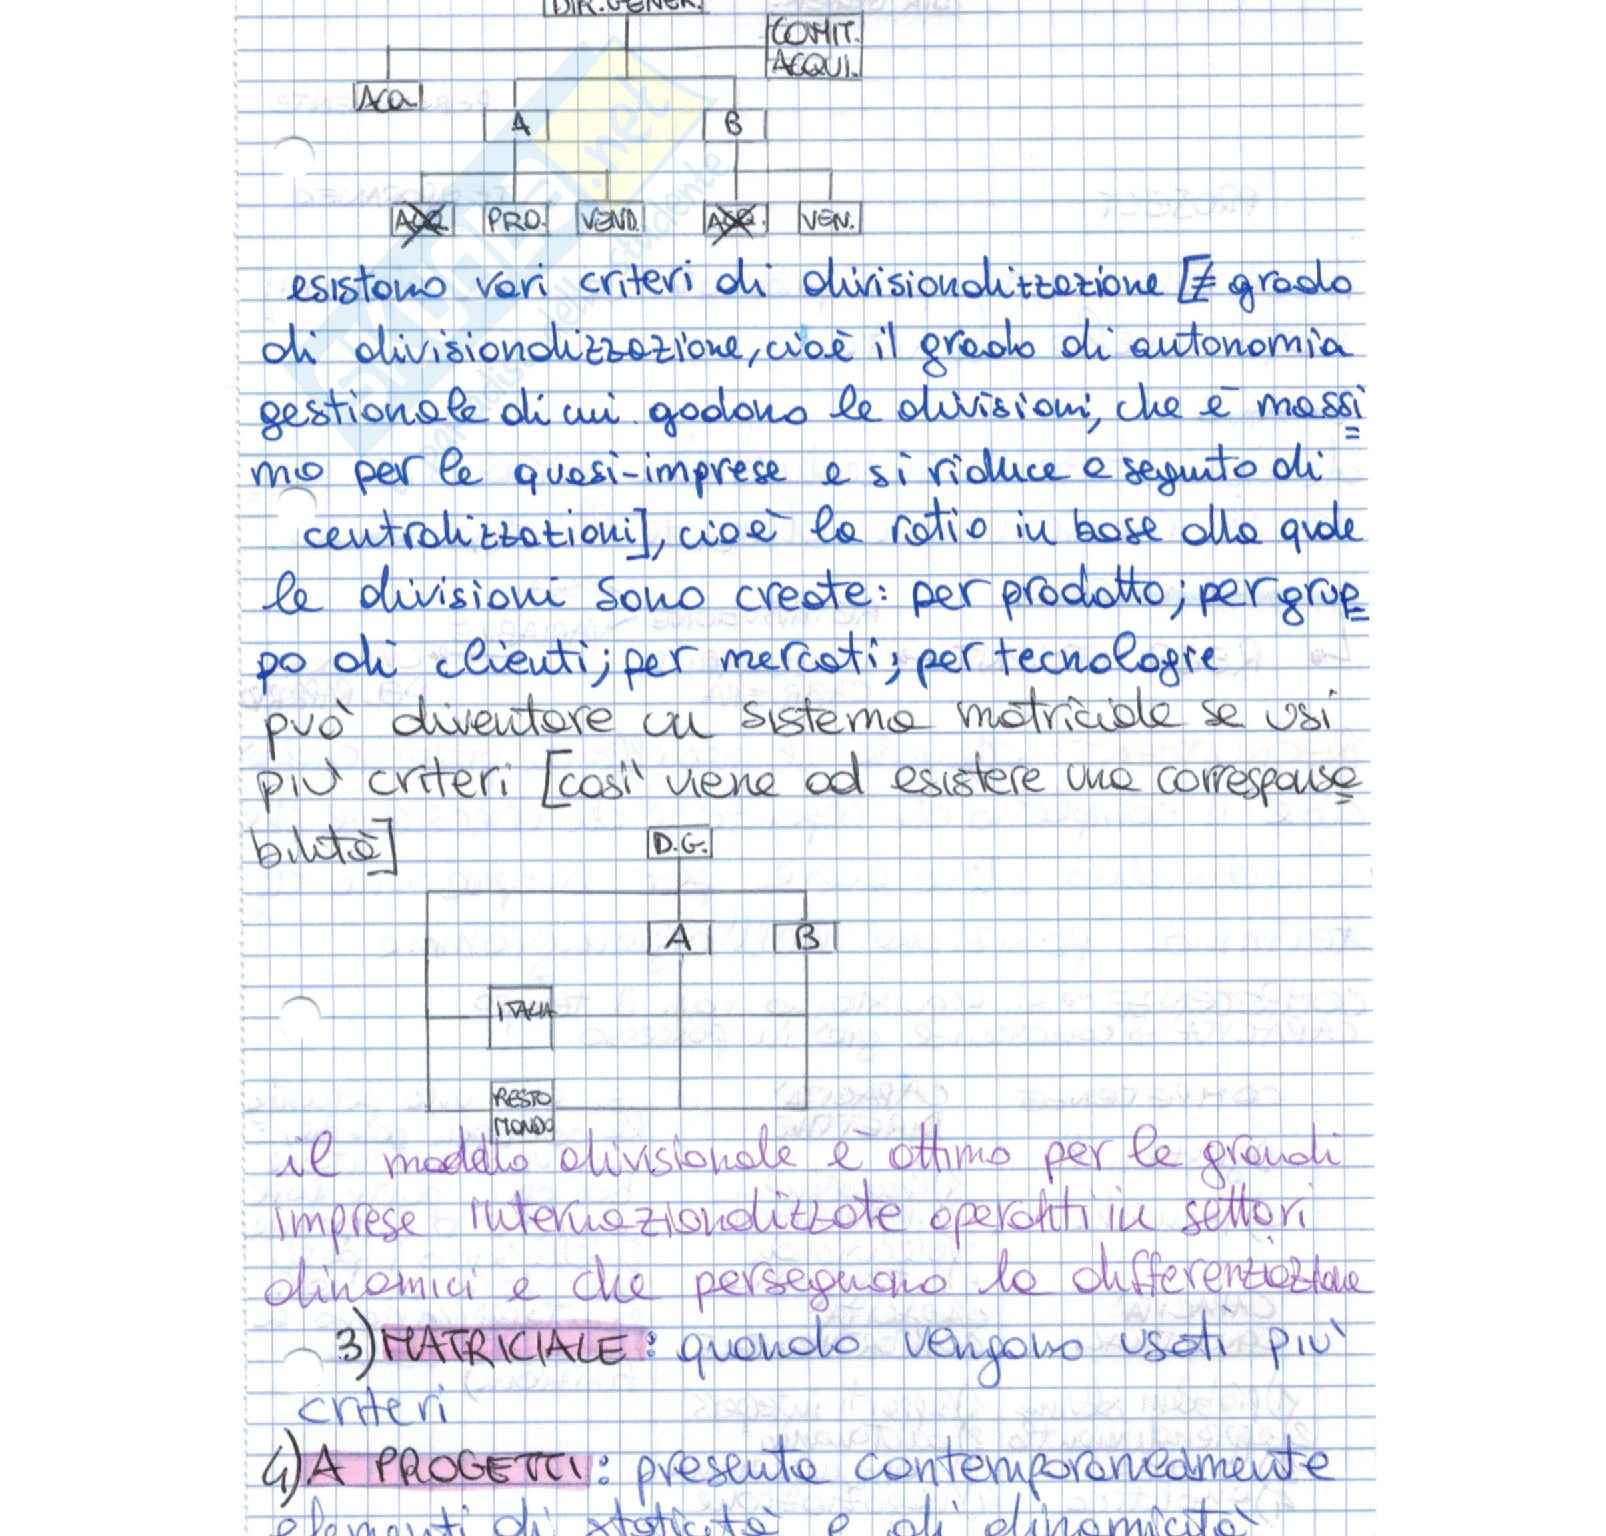 DIR. GENER.
COMIT.
ACQUI.
ACQ
A
B
ACQ.
PRO.
VEND.
ACQ.
VEN.
esistono vari criteri di divisionalizzazione [≠ grado
di divisionalizzazione, cioè il grado di autonomia
gestionale di cui godono le divisioni, che è massi
mo per le quasi-imprese e si riduce a seguito di
centralizzazioni], cioè la ratio in base alla quale
le divisioni sono create: per prodotto; per grup
po di clienti; per mercati; per tecnologie
può diventare un sistema matriciale se usi
più criteri [così viene ad esistere una corresponsa
bilità]
D.G.
A
B
ITALIA
RESTO
MONDO
il modello divisionale è ottimo per le grandi
imprese internazionalizzate operanti in settori
dinamici e che perseguono la differenziazione
3) MATRICIALE: quando vengono usati più
criteri
4) A PROGETTI: presenta contemporaneamente
elementi di staticità e di dinamicità
.net